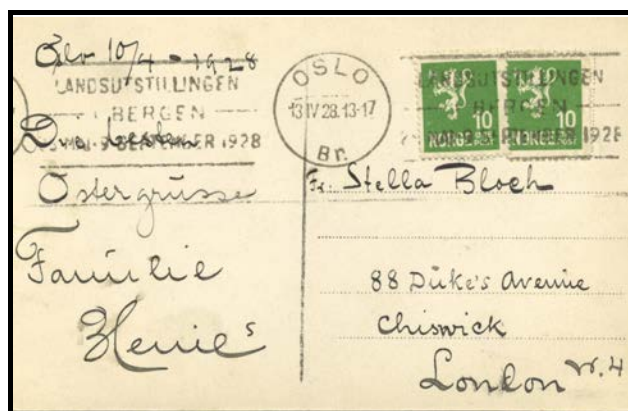 Oslo 10/4 - 1928
LANDSUTSTILLINGEN
BERGEN
MAI-9 SEPTEMBER 1928
besten
Ostergrüsse
Familie
Henie s
OSLO
13 IV 28.13-17
Br.
LANDSUTSTILLINGEN
BERGEN
1928
10
NORGE
10
NORGE
Fr. Stella Bloch
88 Duke's Avenue
Chiswick
London W.4